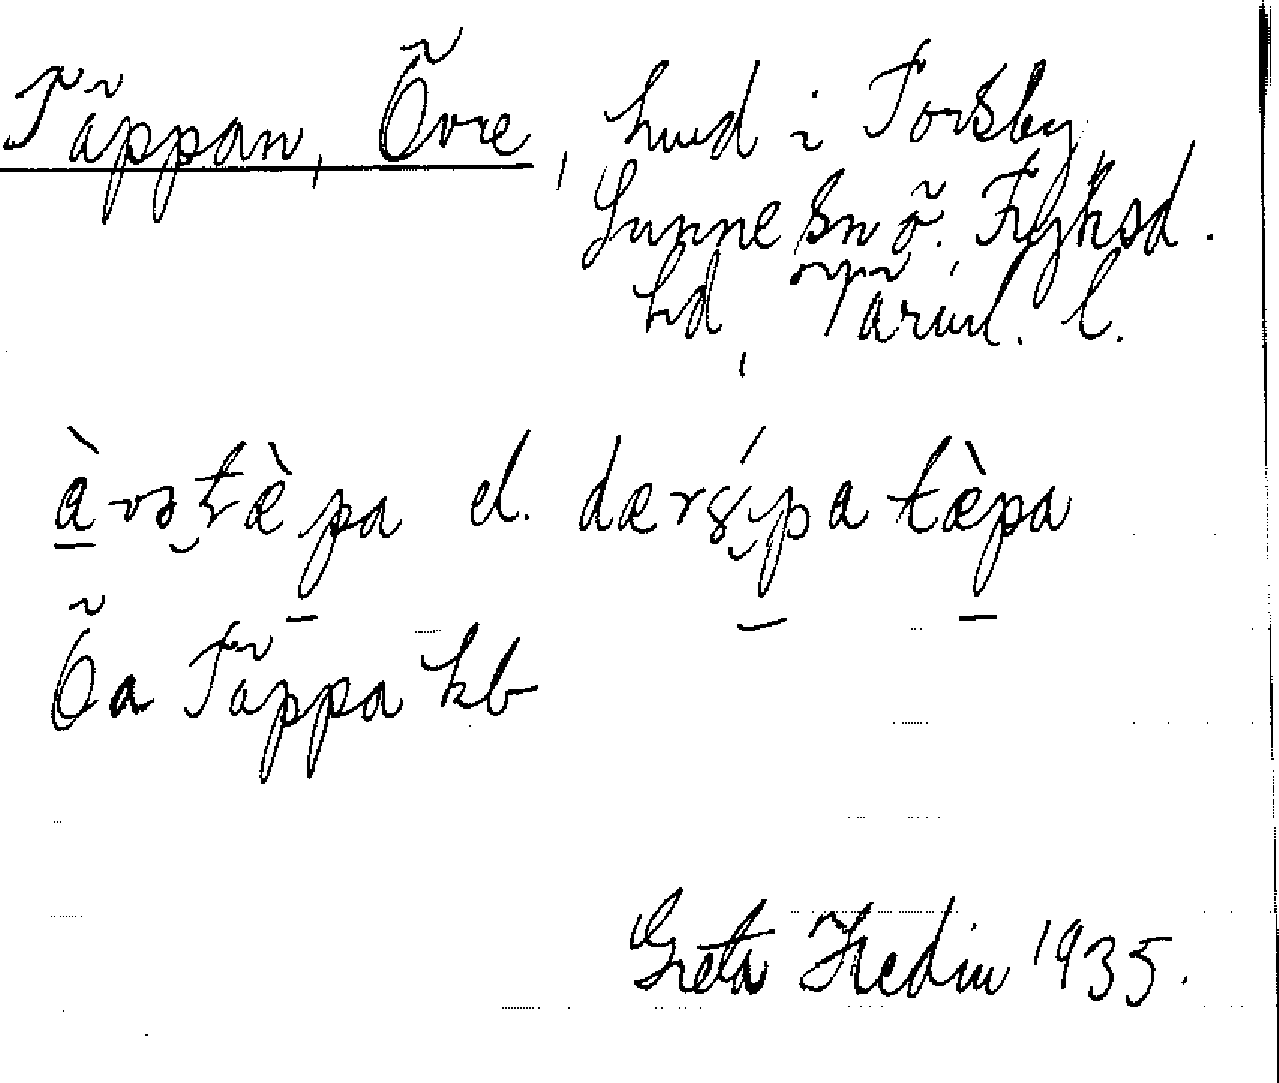 Täppan, Övre, hmd i Torsby,
Sunne sn ö. Fryksd.
hd, Värml. l.
àvətæ̀pa el. dærʂípa tæ̀pa
Öa Täppa kb
Greta Hedin 1935.